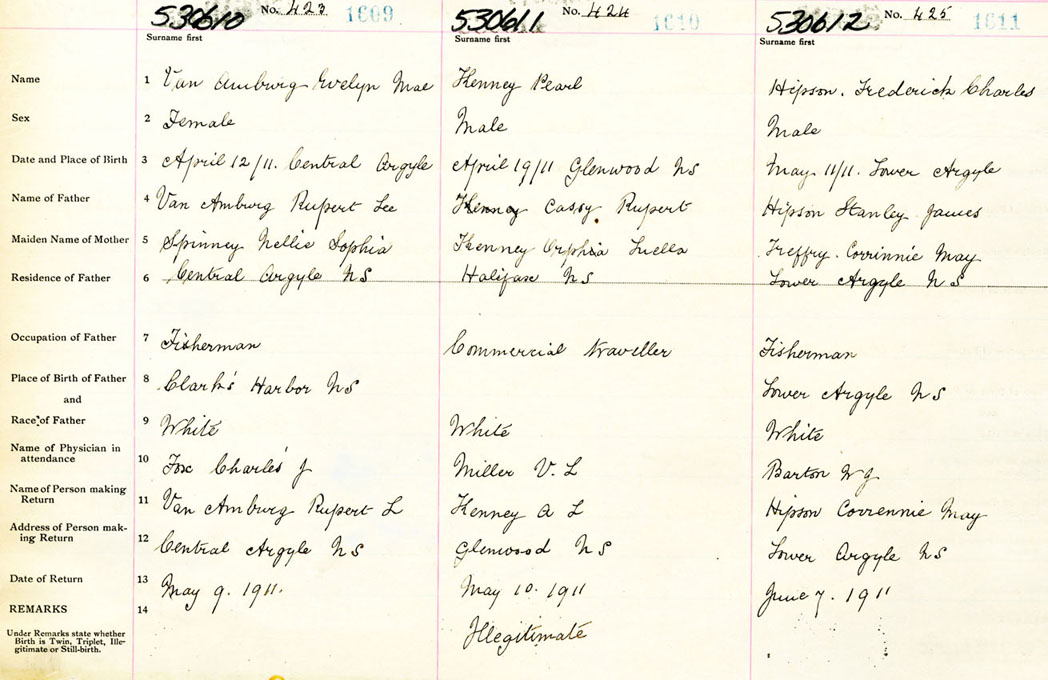 530610 No. 423 1609 530611 No. 424 1610 530612 No. 425 1611
Surname first Surname first Surname first
Name 1 Van Amburg Evelyn Mae Kenney Pearl Hipson. Frederick Charles
Sex 2 Female Male Male
Date and Place of Birth 3 April 12/11. Central Argyle April 19/11 Glenwood NS May 11/11. Lower Argyle
Name of Father 4 Van Amburg Rupert Lee Kenney Rupert Hipson Stanley James
Maiden Name of Mother 5 Spinney Nellie Sophia Kenney Orphia Luella Treffry. Corrinnie May
Residence of Father 6 Central Argyle NS Halifax NS Lower Argyle NS
Occupation of Father 7 Fisherman Commercial Traveller Fisherman
Place of Birth of Father 8 Clark's Harbor NS Lower Argyle NS
and
Race of Father 9 White White White
Name of Physician in
attendance 10 Fox Charles J Miller V. L Barton W J.
Name of Person making
Return 11 Van Amburg Rupert L Kenney A L Hipson Corrennie May
Address of Person mak-
ing Return 12 Central Argyle NS Glenwood NS Lower Argyle NS
Date of Return 13 May 9. 1911. May 10. 1911 June 7. 1911
REMARKS 14
Under Remarks state whether
Birth is Twin, Triplet, Ille-
gitimate or Still-birth.
Illegitimate